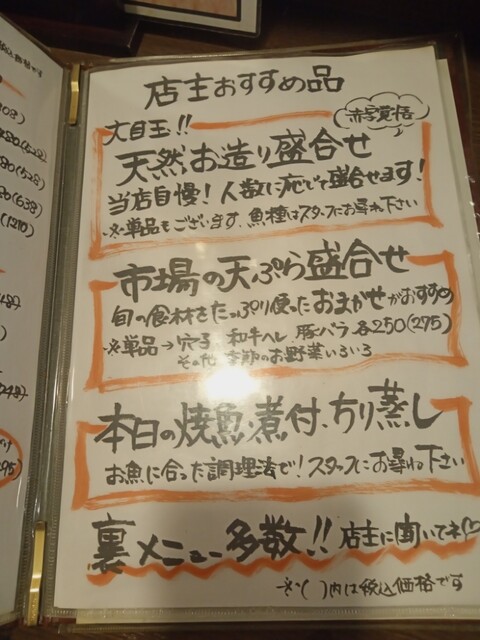 店主おすすめ品
大目玉!!
赤字覚悟
天然お造り盛合せ
当店自慢!人数に応じて盛合せます!
※単品もございます、魚種はスタッフにお尋ね下さい
市場の天ぷら盛合せ
旬の食材をたっぷり使ったおまかせがおすすめ
※単品→穴子 和牛ヘレ 豚バラ 各250(275)
その他 季節のお野菜いろいろ
本日の焼魚・煮付、ちり蒸し
お魚に合った調理法で!スタッフにお尋ね下さい
裏メニュー多数!! 店主に聞いてネ
※( )内は税込価格です
(638)
(1210)